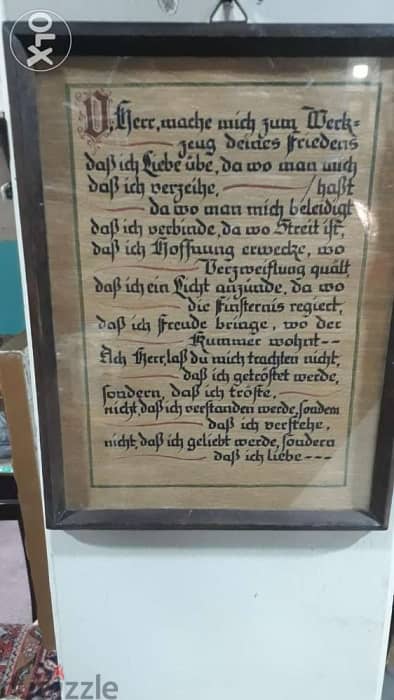 OLX
O, Herr, mache mich zum Werk=
zeug deines Friedens
daß ich Liebe übe, da wo man mich
daß ich verzeihe, / haßt
da wo man mich beleidigt
daß ich verbinde, da wo Streit ist,
daß ich Hoffnung erwecke, wo
Verzweiflung quält,
daß ich ein Licht anzünde, da wo
die Finsternis regiert,
daß ich Freude bringe, wo der
Kummer wohnt--
Ach Herr, laß du mich trachten nicht,
daß ich getröstet werde,
sondern, daß ich tröste,
nicht, daß ich verstanden werde, sondern
daß ich verstehe,
nicht, daß ich geliebt werde, sondern
daß ich liebe---
dubizzle